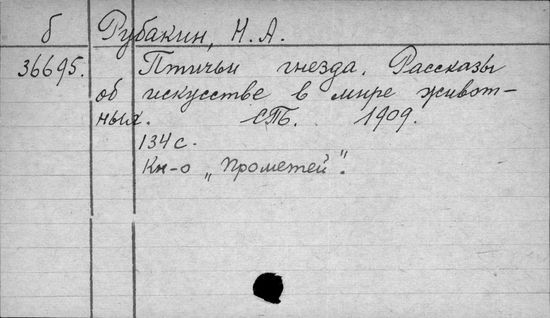 б Рубакин, Н. А.
36695. Птичьи гнезда. Рассказы
об искусстве в мире живот-
ных. СПБ. 1909.
134 с.
Кн-о „Прометей".